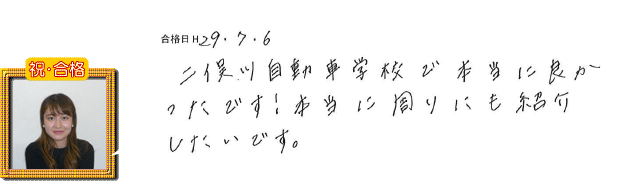 祝・合格
合格日 H29.7.6
二俣川自動車学校で本当に良か
ったです!本当に周りにも紹介
したいです。